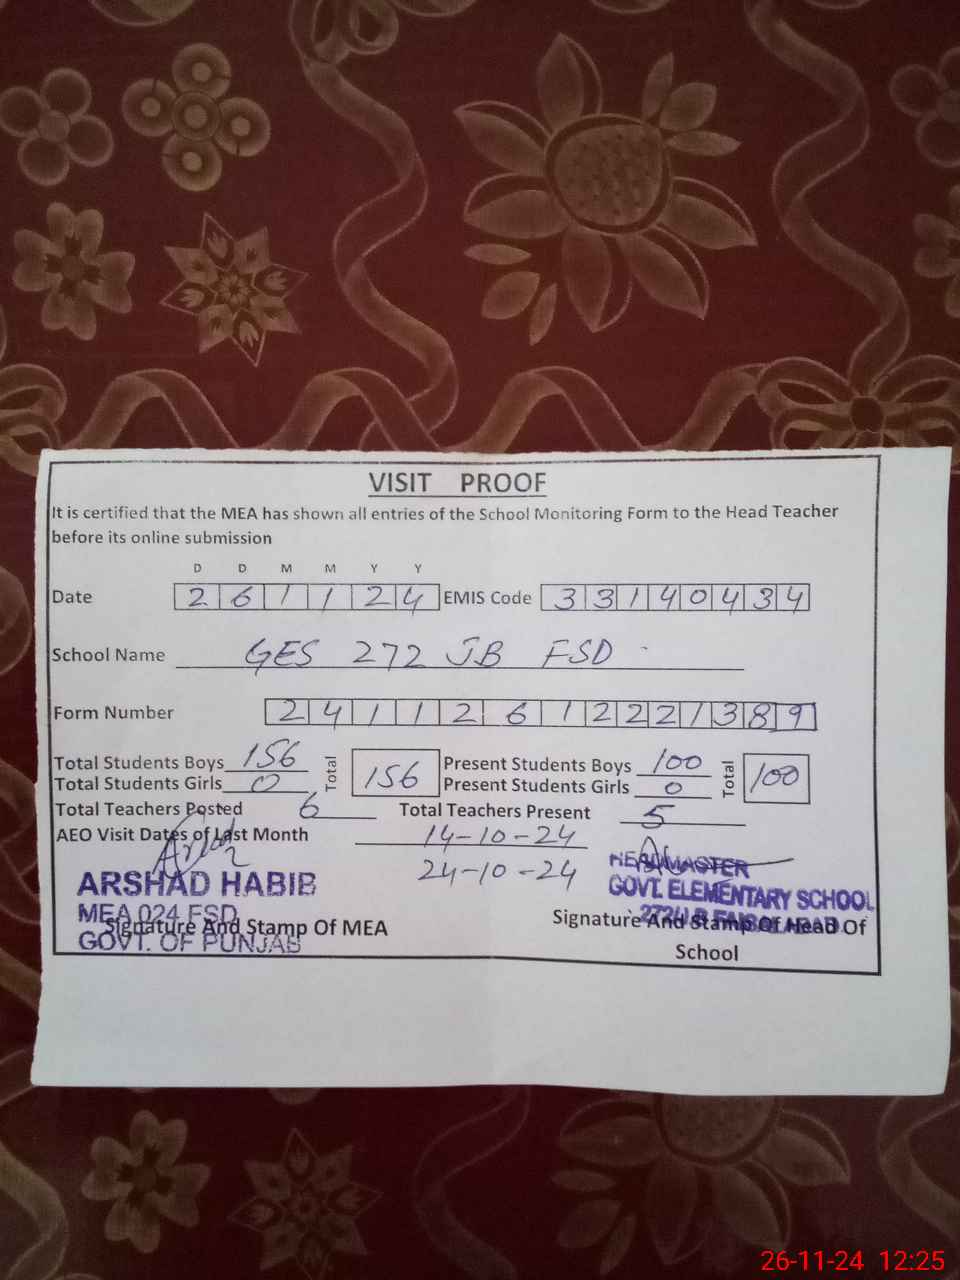 VISIT PROOF
It is certified that the MEA has shown all entries of the School Monitoring Form to the Head Teacher
before its online submission
D D M M Y Y
Date 2 6 1 1 2 4 EMIS Code 3 3 1 4 0 4 3 4
School Name GES 272 JB FSD
Form Number 2 4 1 1 2 6 1 2 2 2 1 3 8 9
Total Students Boys 156 Total 156 Present Students Boys 100 Total 100
Total Students Girls 0 Present Students Girls 0
Total Teachers Posted 6 Total Teachers Present 5
AEO Visit Dates of Last Month 14-10-24
24-10-24
ARSHAD HABIB
MEA 024 FSD
GOVT. OF PUNJAB
Signature And Stamp Of MEA
HEADMASTER
GOVT. ELEMENTARY SCHOOL
272 J.B FAISALABAD
Signature And Stamp Of Head Of
School
26-11-24 12:25